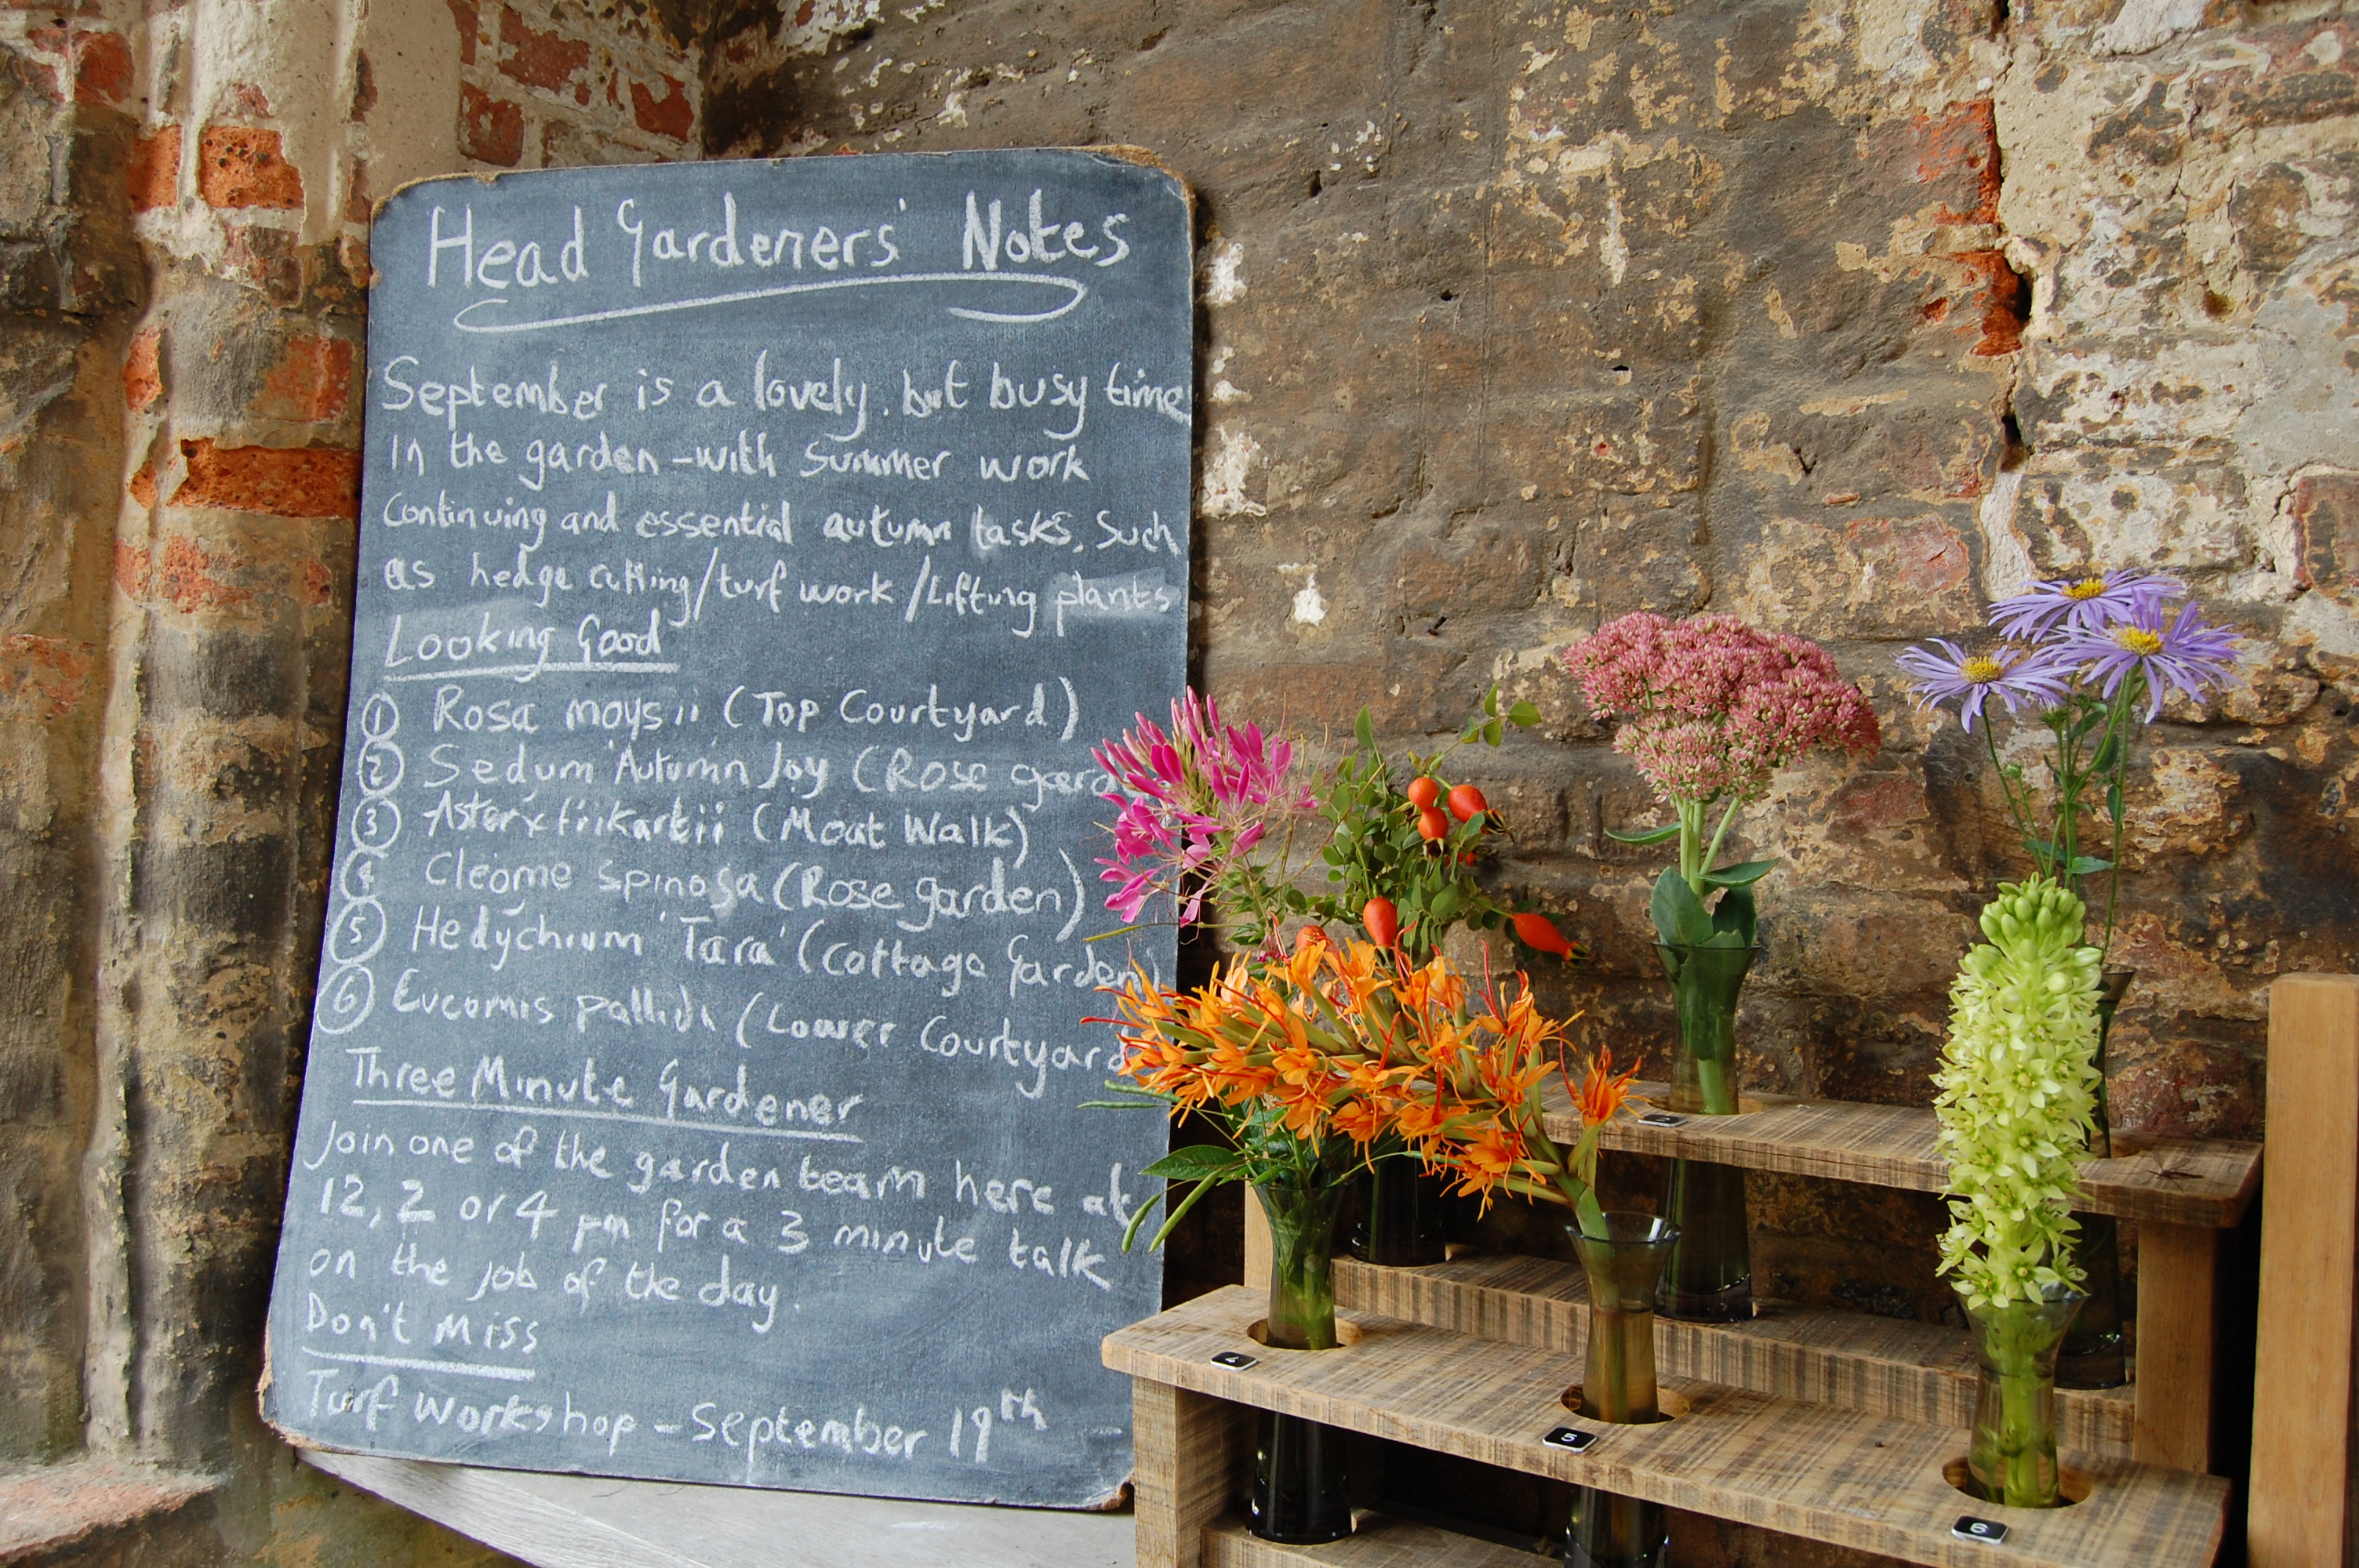 Head Gardeners' Notes
September is a lovely, but busy time
in the garden - with summer work
continuing and essential autumn tasks, such
as hedge cutting/turf work/lifting plants
Looking Good
1 Rosa moysii (Top Courtyard)
2 Sedum 'Autumn Joy' (Rose gard
3 Aster x friikartii (Moat Walk)
4 Cleome spinosa (Rose garden)
5 Hedychium 'Tara' (Cottage Garden)
6 Eucomis pallidi (Lower Courtyard
Three Minute Gardener
Join one of the garden team here at
12, 2 or 4 pm for a 3 minute talk
on the job of the day.
Don't Miss
Turf Workshop - September 19th
4
5
6